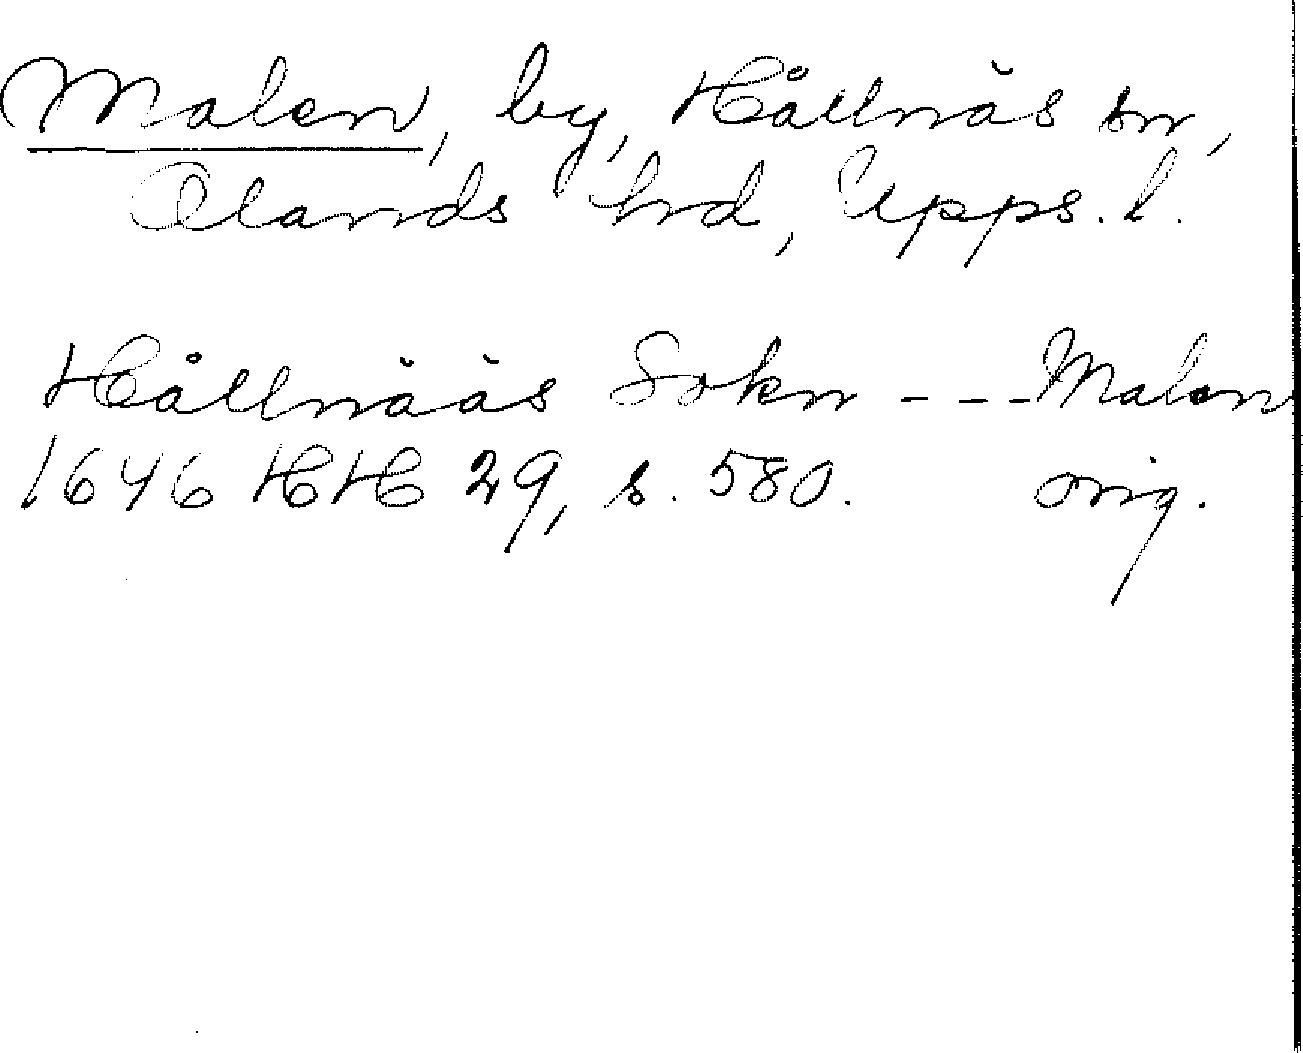 Malen, by, Hållnäs sn,
Olands hrd, Upps. l.
Hållnääs Sokn - - - Malen
1646 HH 29, s. 580. orig.